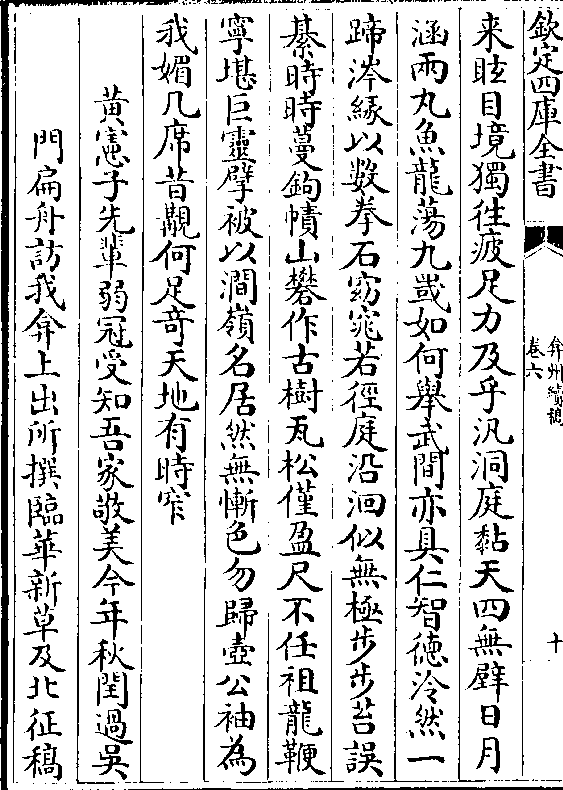 欽定四庫全書
弇州續稿
卷六
十
来眩目境獨往疲足力及乎汎洞庭黏天四無壁日月
涵兩丸魚龍蕩九域如何舉武間亦具仁智徳泠然一
蹄涔緣以数拳石窈窕若徑庭沿洄似無極步步苔誤
綦時時蔓鉤幘山礬作古樹瓦松僅盈尺不任祖龍鞭
寧堪巨靈擘被以澗嶺名居然無慚色勿歸壺公袖為
我媚几席昔觀何足竒天地有時窄
黄憲子先輩弱冠受知吾家敬美今年秋閏過吳
門扁舟訪我弇上出所撰臨華新草及北征稿